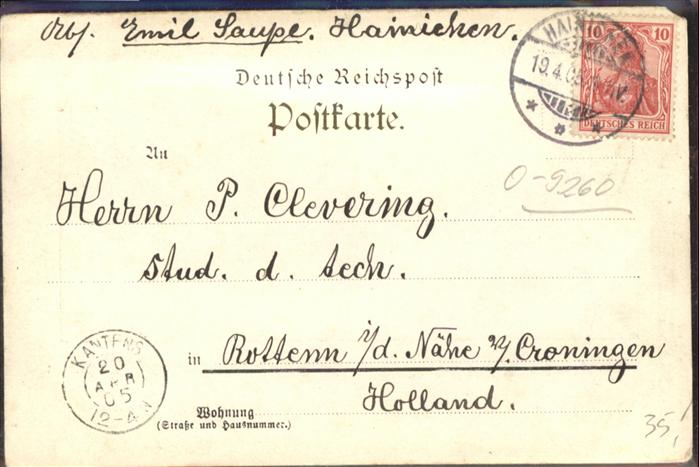 Abs. Emil Saupe. Hainichen.
10 10
DEUTSCHES REICH
HAINICHEN
19.4.05
Deutsche Reichspost
Postkarte.
An
0-9260
Herrn P. Clevering.
stud. d. tech.
in Rottenn i/d. Nähe v/. Croningen
Holland.
KANTENS
20
APR
05
12-4N
Wohnung
(Straße und Hausnummer.)
35,